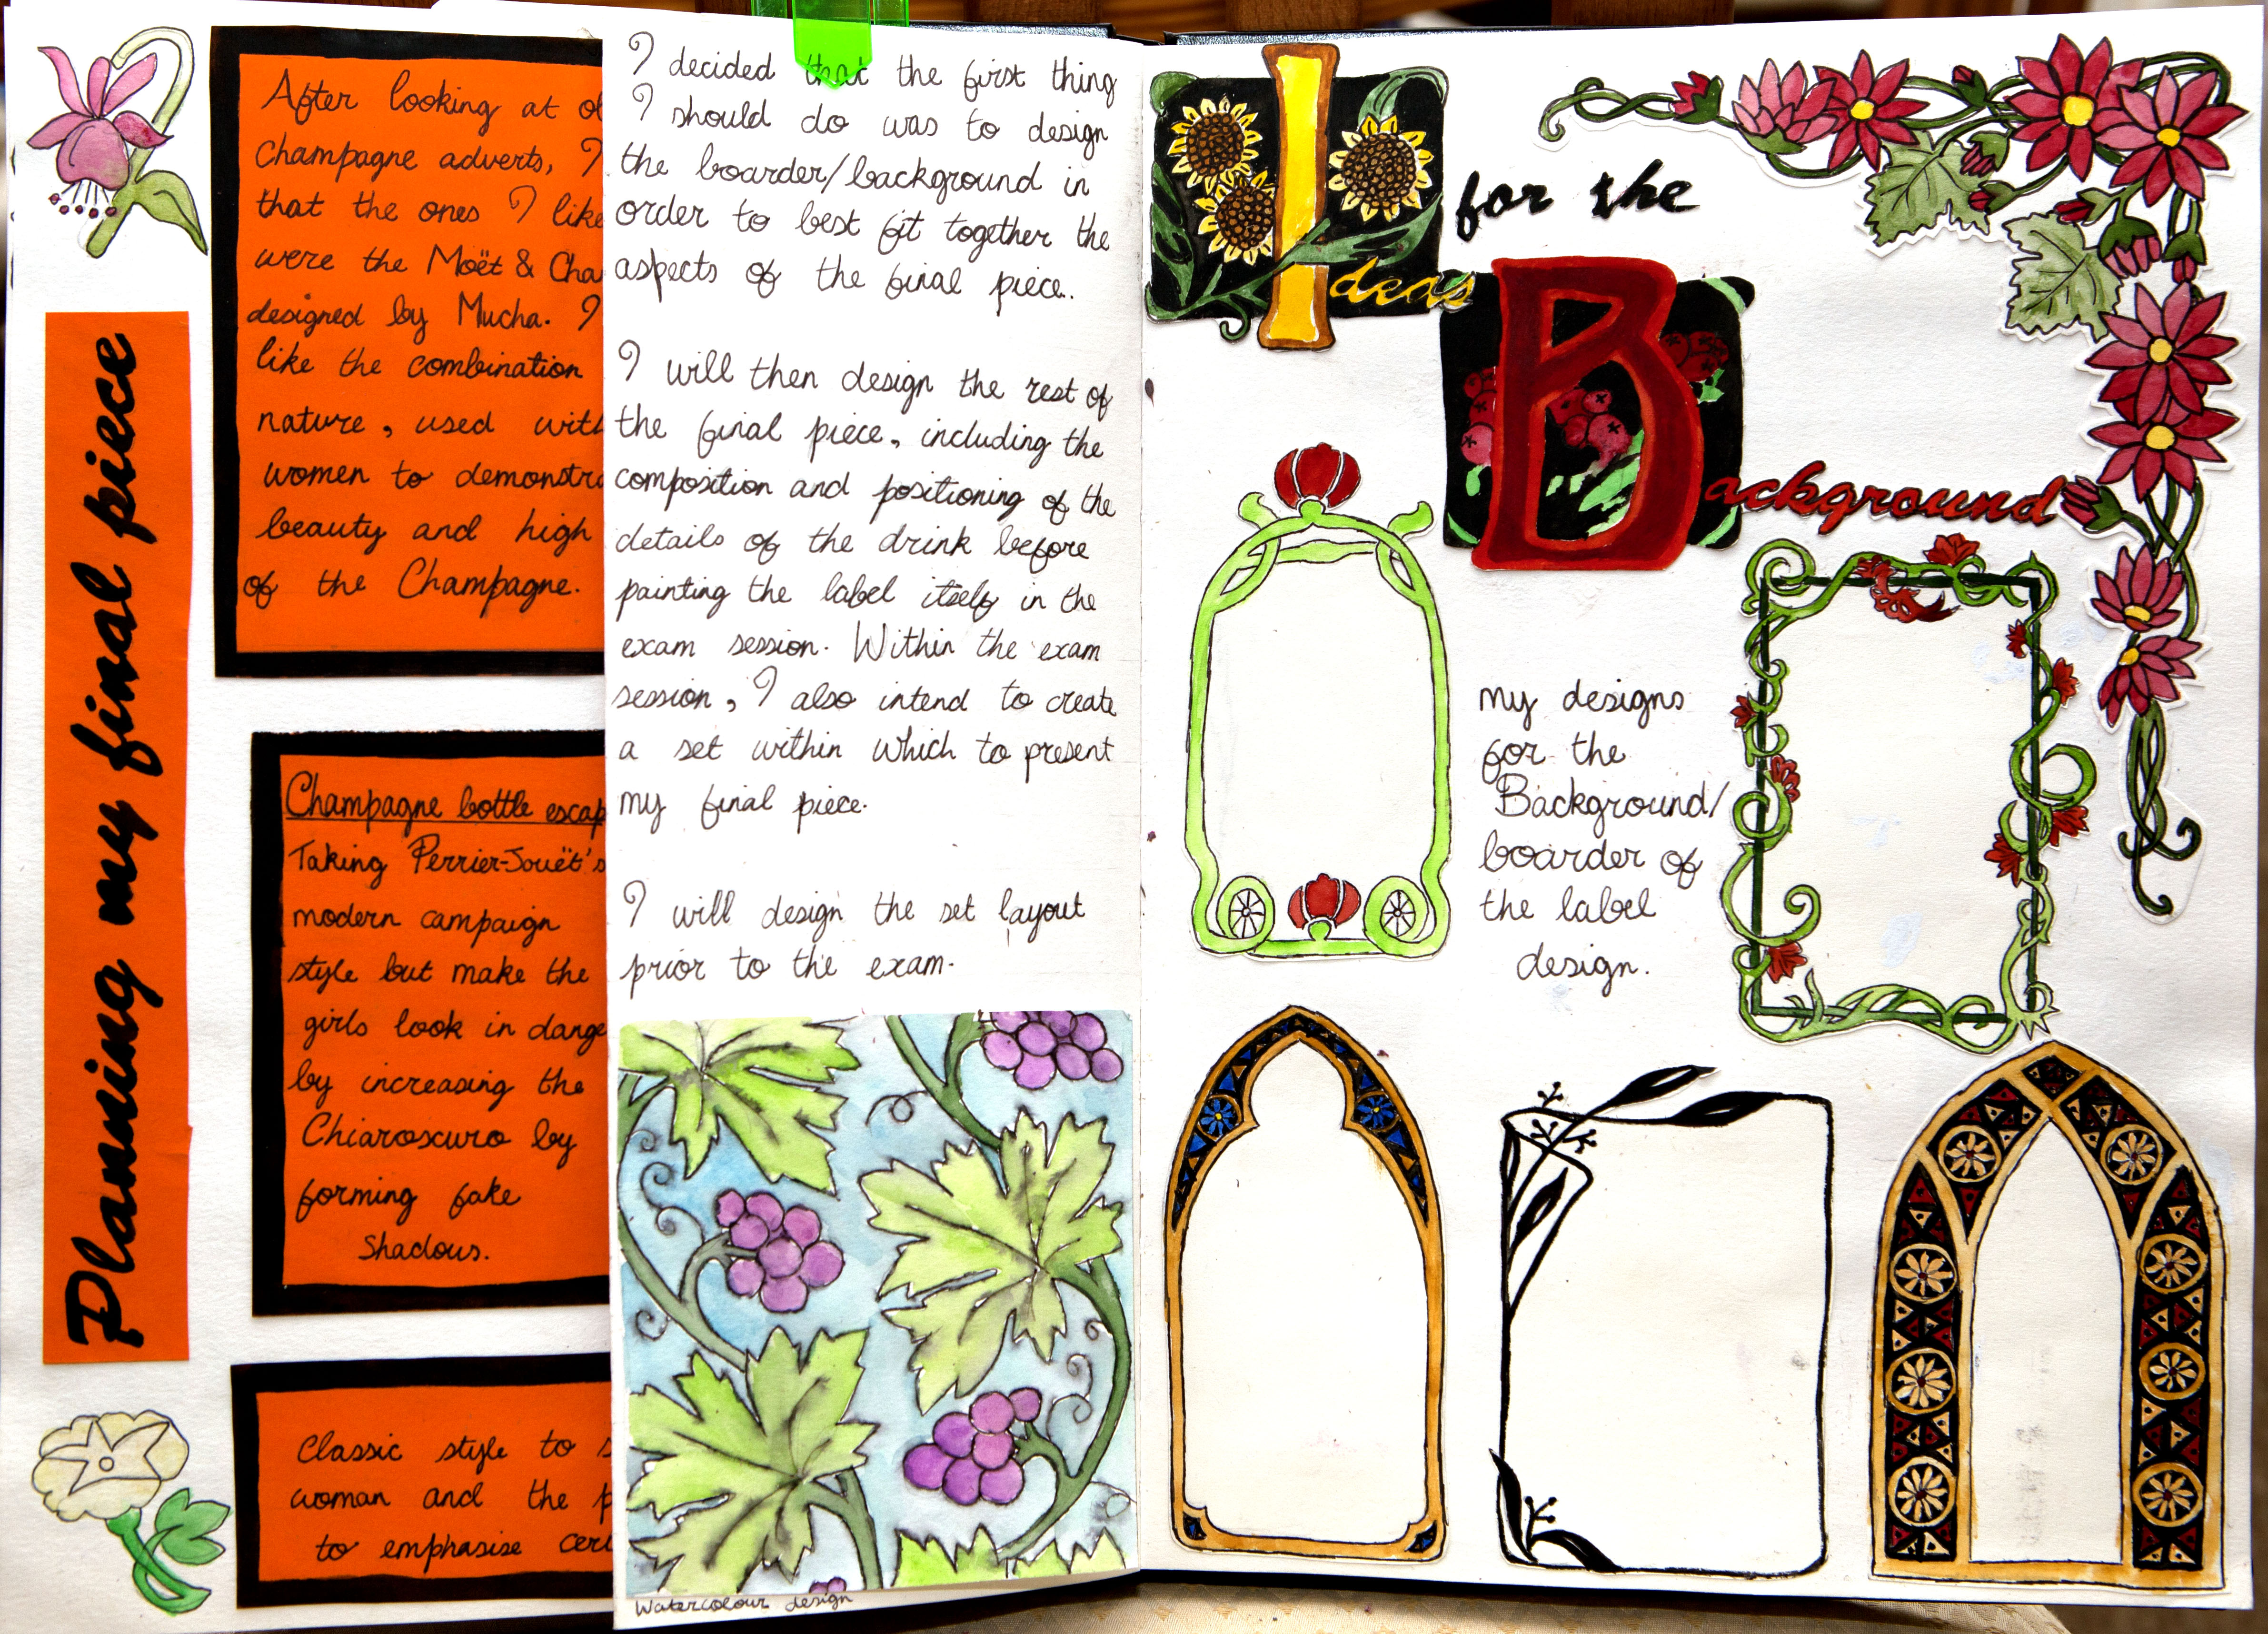 Planning my final piece
After looking at
Champagne adverts, I
that the ones I like
were the Moët &
designed by Mucha. I
like the combination
nature, used
women to
beauty and high
of the Champagne.
Champagne bottle
Taking Perrier-Jouët's
modern campaign
style but make the
girls look in
by increasing the
Chiaroscuro by
forming fake
Shadows.
Classic style to
woman and the
to emphasise
I decided that the first thing
I should do was to design
the boarder/background in
order to best fit together the
aspects of the final piece.
I will then design the rest of
the final piece, including the
composition and positioning of the
details of the drink before
painting the label itself in the
exam session. Within the exam
session, I also intend to create
a set within which to present
my final piece.
I will design the set layout
prior to the exam.
Watercolour design
Ideas for the
Background
my designs
for the
Background/
boarder of
the label
design.